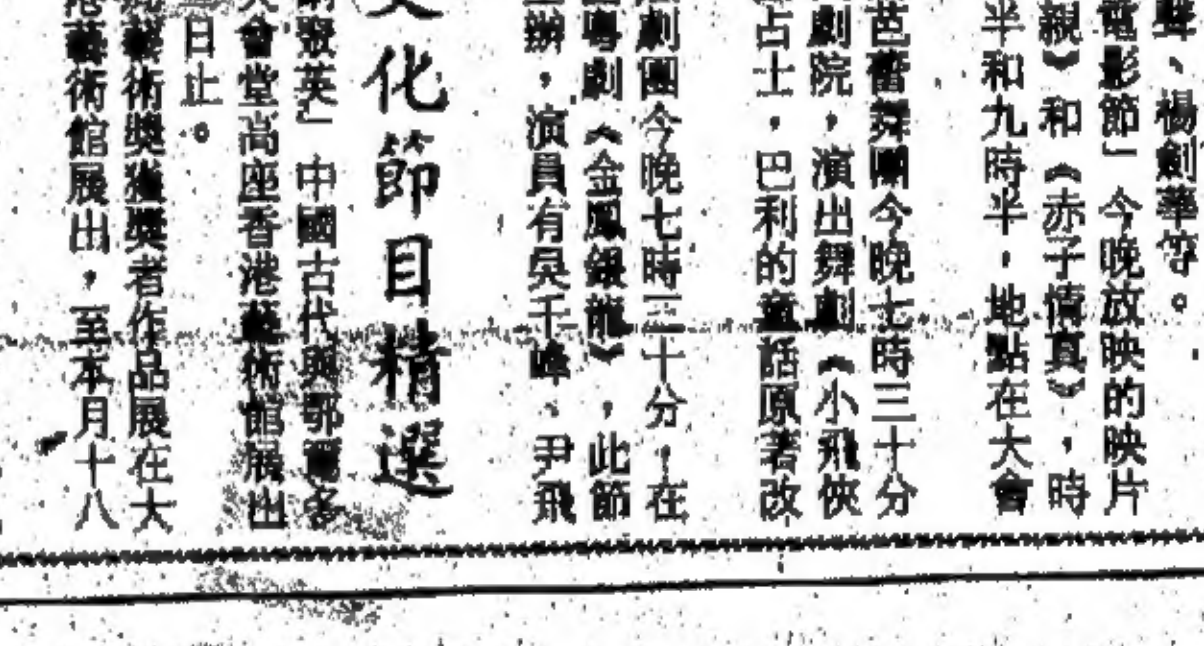 聲、楊劍華等。
電影節」今晚放映的映片
親》和《赤子情真》，時
半和九時半，地點在大會
芭蕾舞團今晚七時三十分
劇院，演出舞劇《小飛俠
占士，巴利的童話原著改
劇團今晚七時三十分，在
粵劇《金鳳銀龍》，此節
辦，演員有吳千峰、尹飛
文化節目精選
聚英」中國古代與鄂爾多
會堂高座香港藝術館展出
日止。
藝術獎獲獎者作品展在大
港藝術館展出，至本月十八